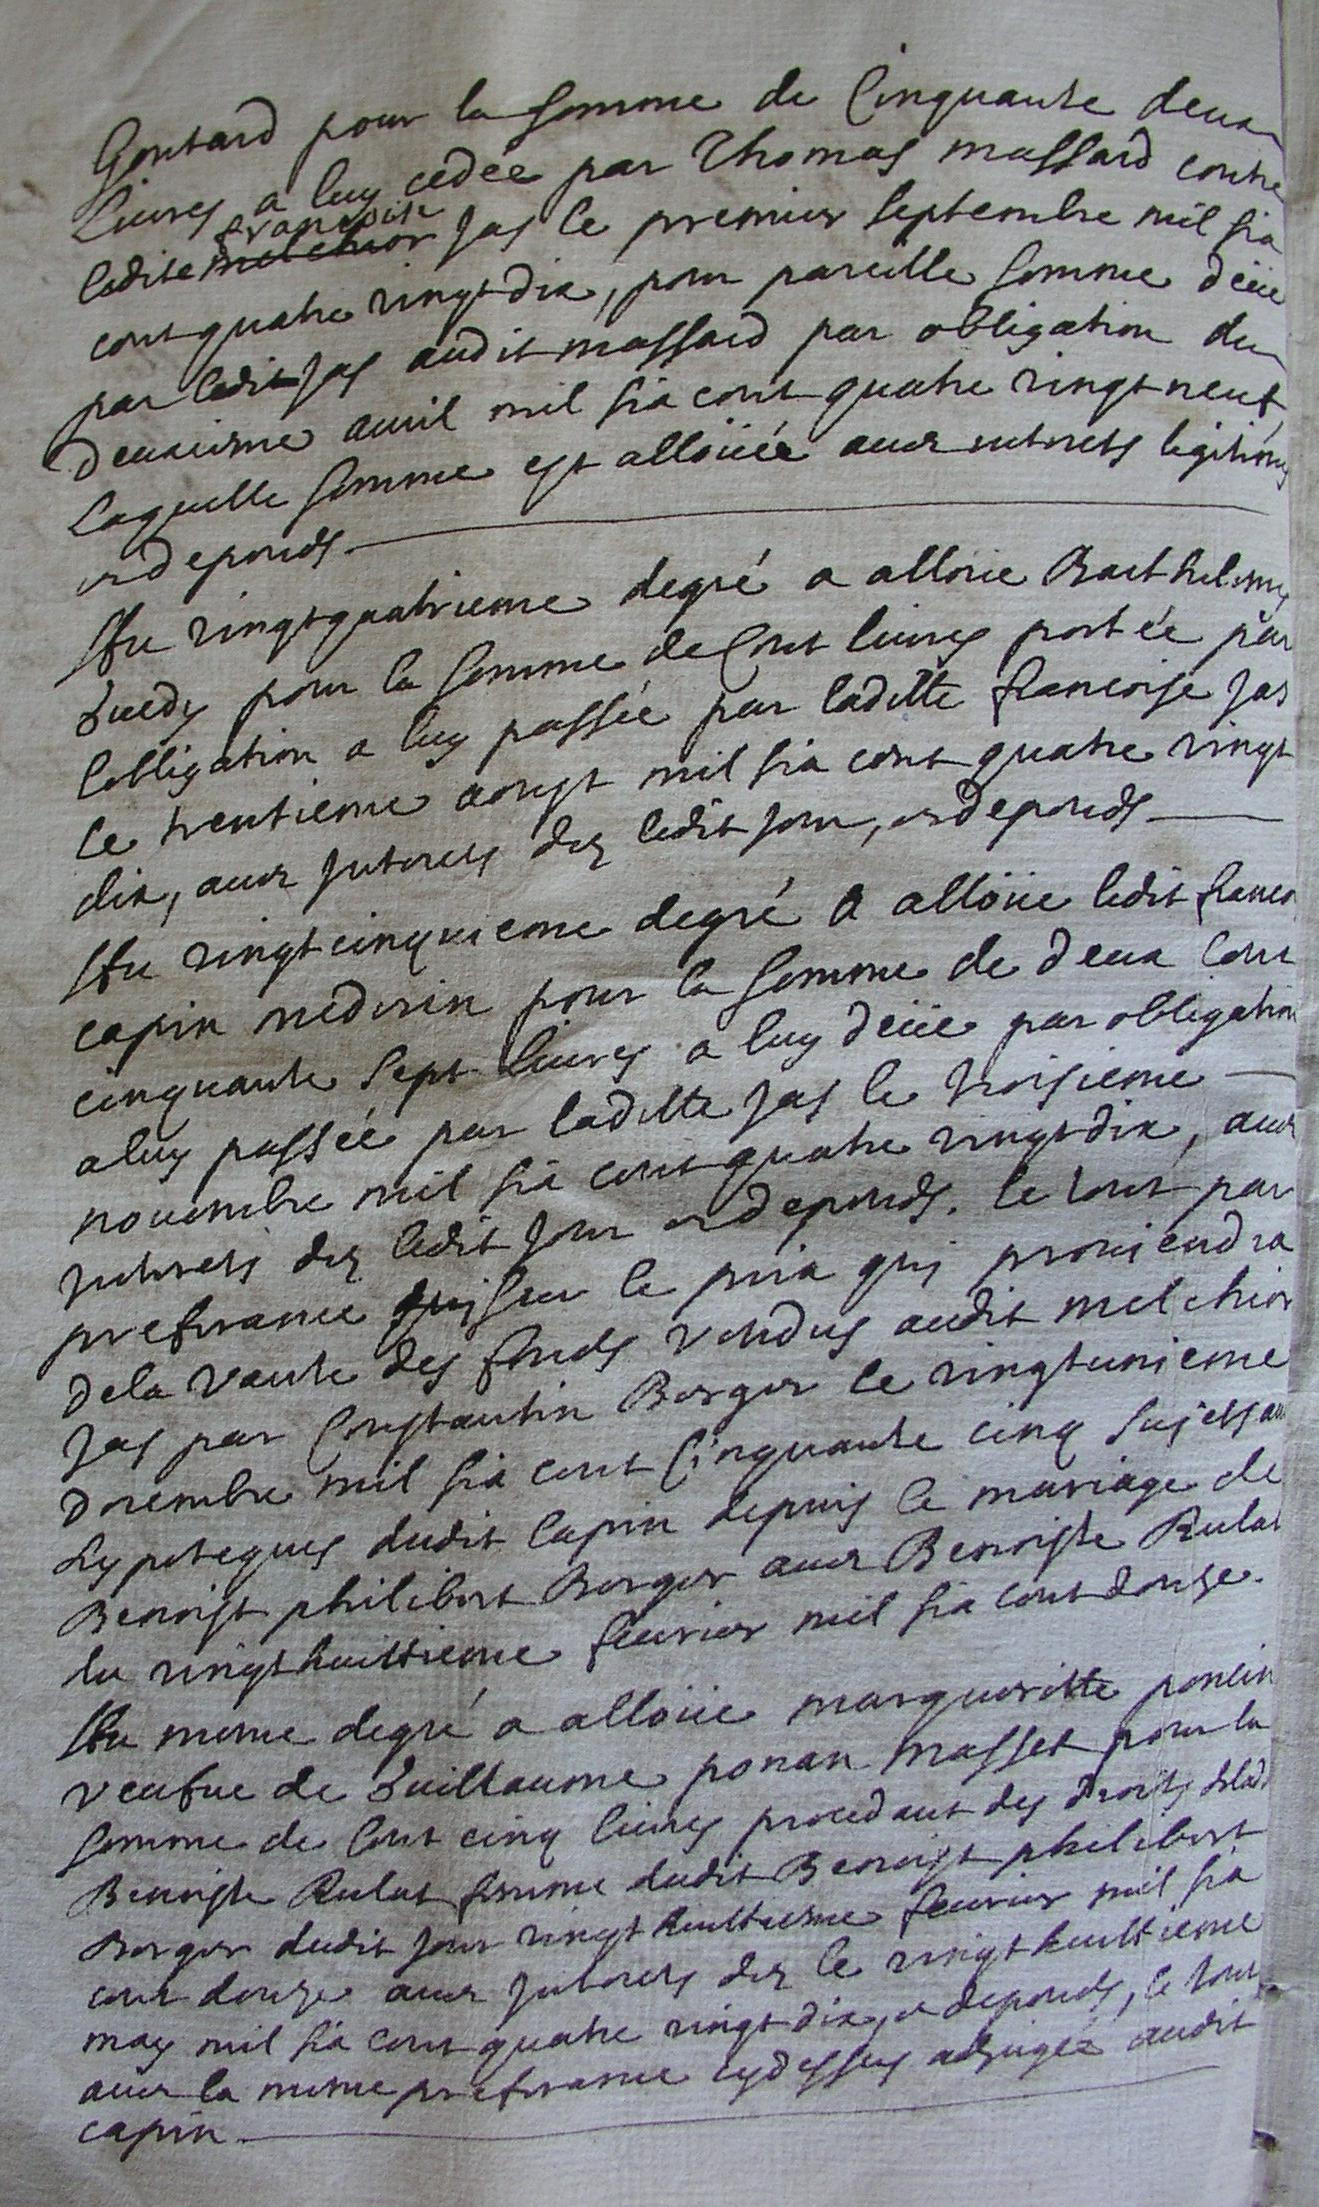 Goutard pour la somme de Cinquante deux
Livres a luy cedée par Thomas massard contre
ledite francoise melchior Jas le premier septembre mil six
cent quatre vingt dix, pour pareille somme deüe
par ledit Jas audit massard par obligation du
deuxieme auril mil six cent quatre vingt neuf,
Laquelle somme est alloüée auec interets legitimes
et depends.
Au vingt quatrieme degré a alloüe Barthelemy
pour la somme de Cent liures portée par
lobligation a luy passée par laditte francoise Jas
le trentieme aoust mil six cent quatre vingt
dix, auec Interets dez ledit jour, et depends
Au vingt cinquieme degré a alloüe ledit francois
capin medecin pour la somme de deux Cent
cinquante sept Liures a luy deüe par obligation
a luy passée par laditte Jas le troisieme
nouembre mil six cent quatre vingt dix, auec
interets dez ledit jour et depends. le tout par
preferance sur le prix qui prouiendra
de la vante des fonds vendus audit melchior
Jas par Constantin Borger le vingtunieme
decembre mil six cent Cinquante cinq sujets aux
hypoteques dudit Capin depuis le mariage de
Benoist philibert Borger auec Benoiste Rulat
du vingt huittieme feurier mil six cent douze.
Au meme degré a alloüe margueritte poncin
veufue de Guillaume ponan masset pour la
somme de Cent cinq liures procedant des droits de lad
Benoiste Rulat femme dudit Benoist philibert
Borger dudit jour vingt huittieme feurier mil six
cent douze auec Interets dez le vingt huittieme
may mil six cent quatre vingt dix, et depends, le tout
auec la meme preferance cy dessus adjugée audit
capin.